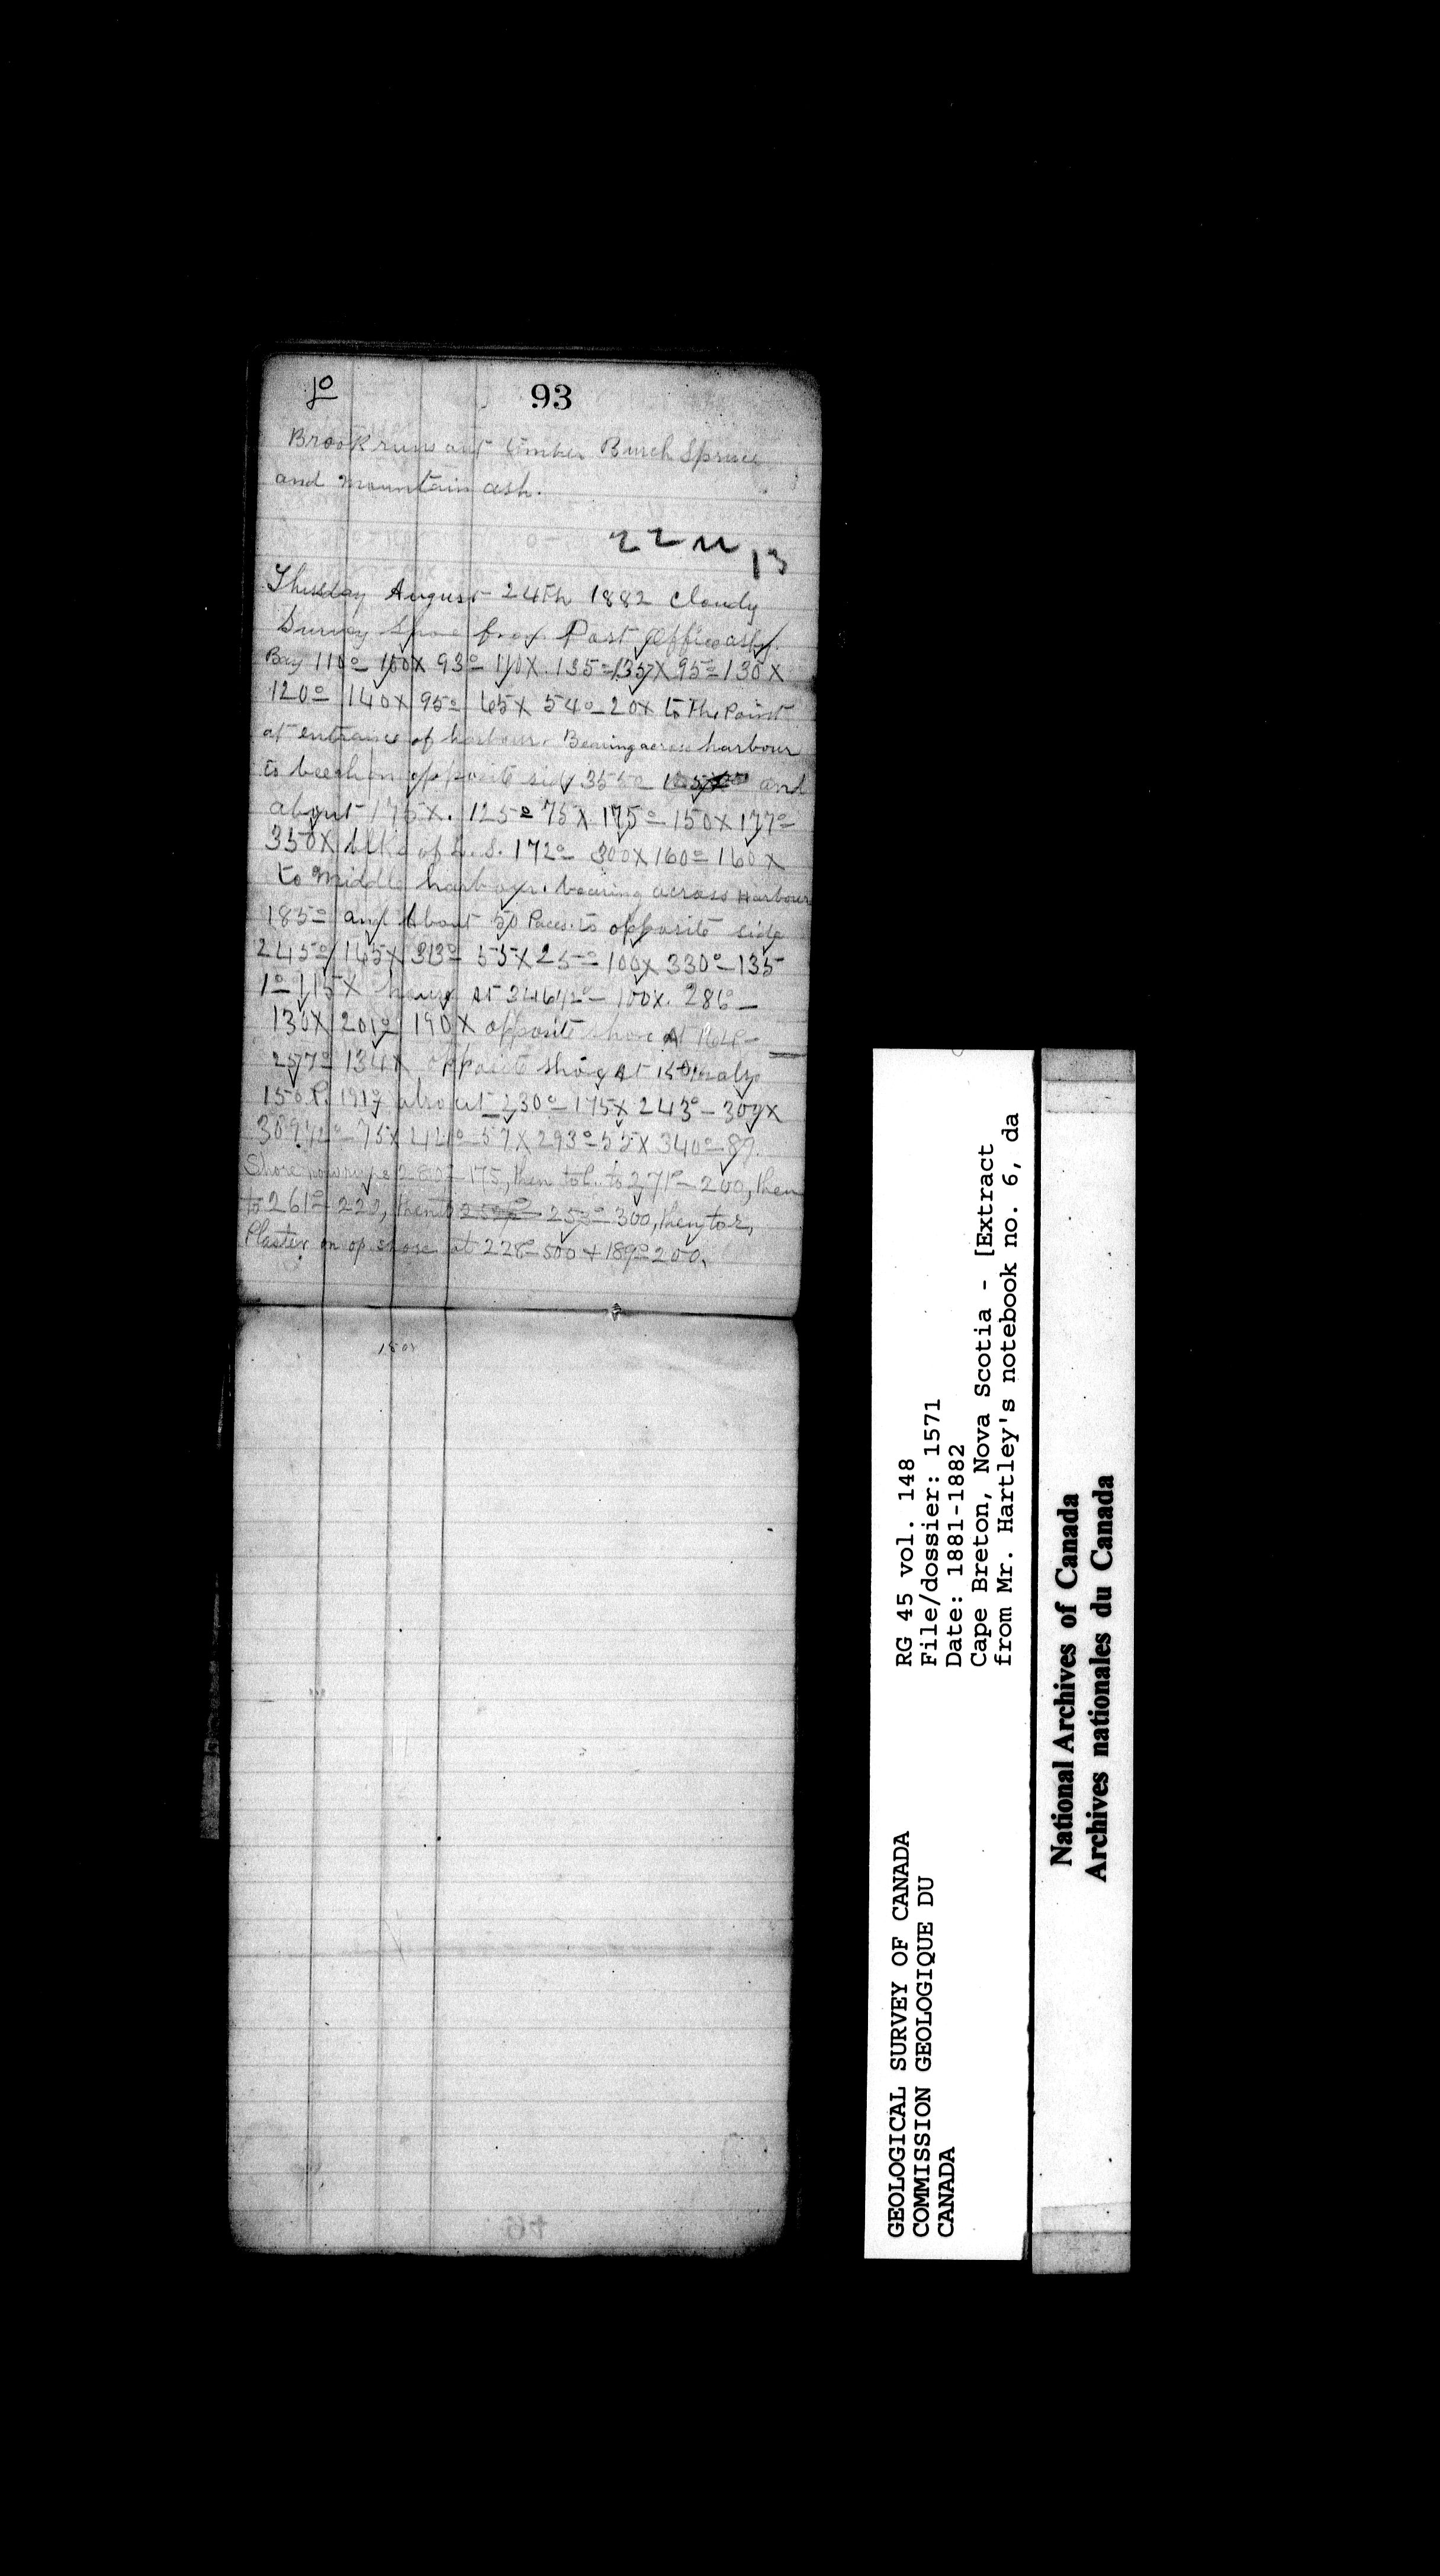 93
Brook runs out timber Birch Spruce
and mountain ash.
22 N 13
Thusday August 24th 1882 Cloudy
Survey Shore from Post Office ashy
Bay 110°- 160X 93°- 110X. 135°-135X 95°-130X
120°- 140X 95°- 65X 54°-20X to the Point
at entrance of harbour. Bearing across harbour
to beech on opposite side 355°- and
about 175X. 125°- 75X 175°-150X 177°-
350X blks of L.S. 172°- 300X 160°-160X
to Middle harbour. bearing across Harbour
185°- and About 50 Paces to opposite side
245°- 145X 313°- 55X 25°-100X 330°-135
1°-115X house At 346½°- 100X. 286°-
130X 201°- 190X opposite shore At
257°- 134X opposite shore At
150 P. also at 230°-175X 243°-309X
75X 57X 293°-55X 340°-89.
Shore 280°-175, then to to 271°-200, then
to 261°-222, then to 253°-300, then to
Plaster on op shore at 228°-500 + 189°-200.
GEOLOGICAL SURVEY OF CANADA
COMMISSION GEOLOGIQUE DU
CANADA
RG 45 vol. 148
File/dossier: 1571
Date: 1881-1882
Cape Breton, Nova Scotia - [Extract
from Mr. Hartley's notebook no. 6, da
National Archives of Canada
Archives nationales du Canada